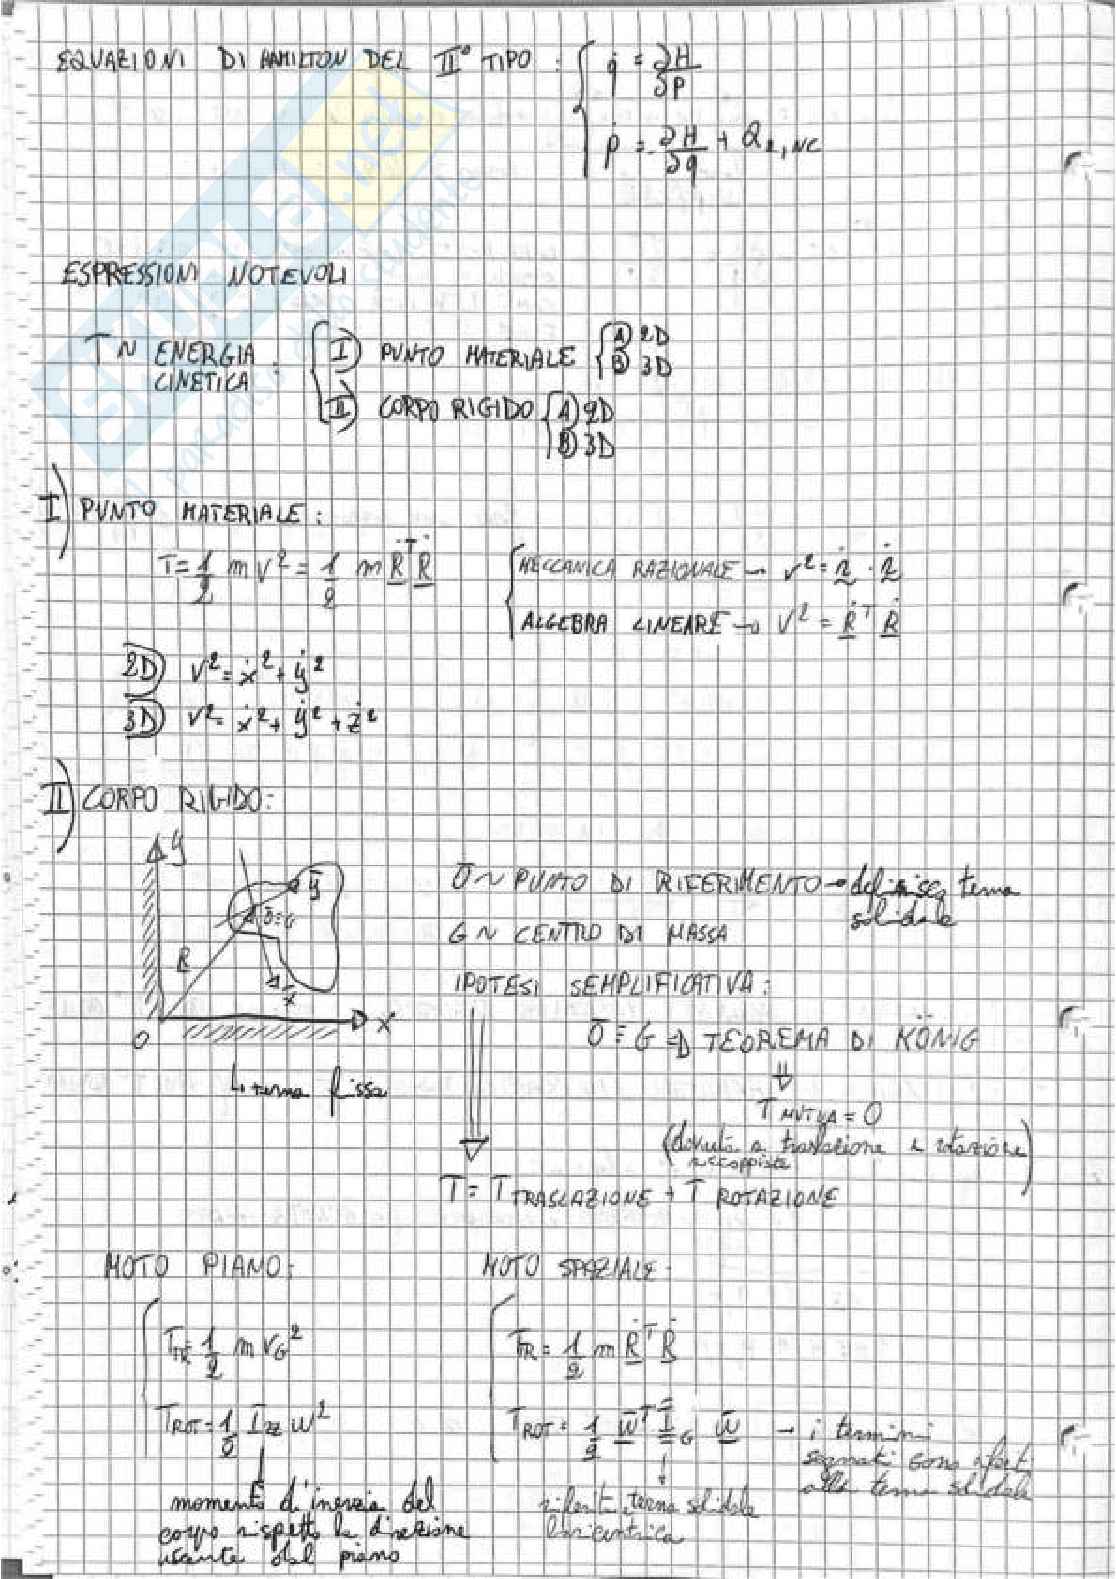 EQUAZIONI DI HAMILTON DEL II° TIPO : { q̇ = ∂H/∂p
ṗ = -∂H/∂q + Q₂,NC
ESPRESSIONI NOTEVOLI
T ~ ENERGIA CINETICA : { I) PUNTO MATERIALE { A) 2D
B) 3D
II) CORPO RIGIDO { A) 2D
B) 3D
I) PUNTO MATERIALE :
T = 1/2 m v² = 1/2 m Ṙᵀ Ṙ
{ MECCANICA RAZIONALE → v² = ṙ · ṙ
ALGEBRA LINEARE → v² = Ṙᵀ Ṙ
2D) v² = ẋ² + ẏ²
3D) v² = ẋ² + ẏ² + ż²
II) CORPO RIGIDO :
y
ȳ
Ō≡G
R
x̄
O
x
↳ terna fissa
Ō ~ PUNTO DI RIFERIMENTO → definisce terna
solidale
G ~ CENTRO DI MASSA
IPOTESI SEMPLIFICATIVA :
Ō ≡ G ⇒ TEOREMA DI KÖNIG
⇓
T MUTUA = 0
(dovuta a traslazione e rotazione
accoppiate)
T = T TRASLAZIONE + T ROTAZIONE
MOTO PIANO :
T TR = 1/2 m v_G²
T ROT = 1/2 I zz ω²
momento d'inerzia del
corpo rispetto la direzione
uscente dal piano
MOTO SPAZIALE :
T TR = 1/2 m Ṙᵀ Ṙ
T ROT = 1/2 ω̄ᵀ Ī_G ω̄ → i termini
segnati sono
alla terna solidale
terna solidale
baricentrica